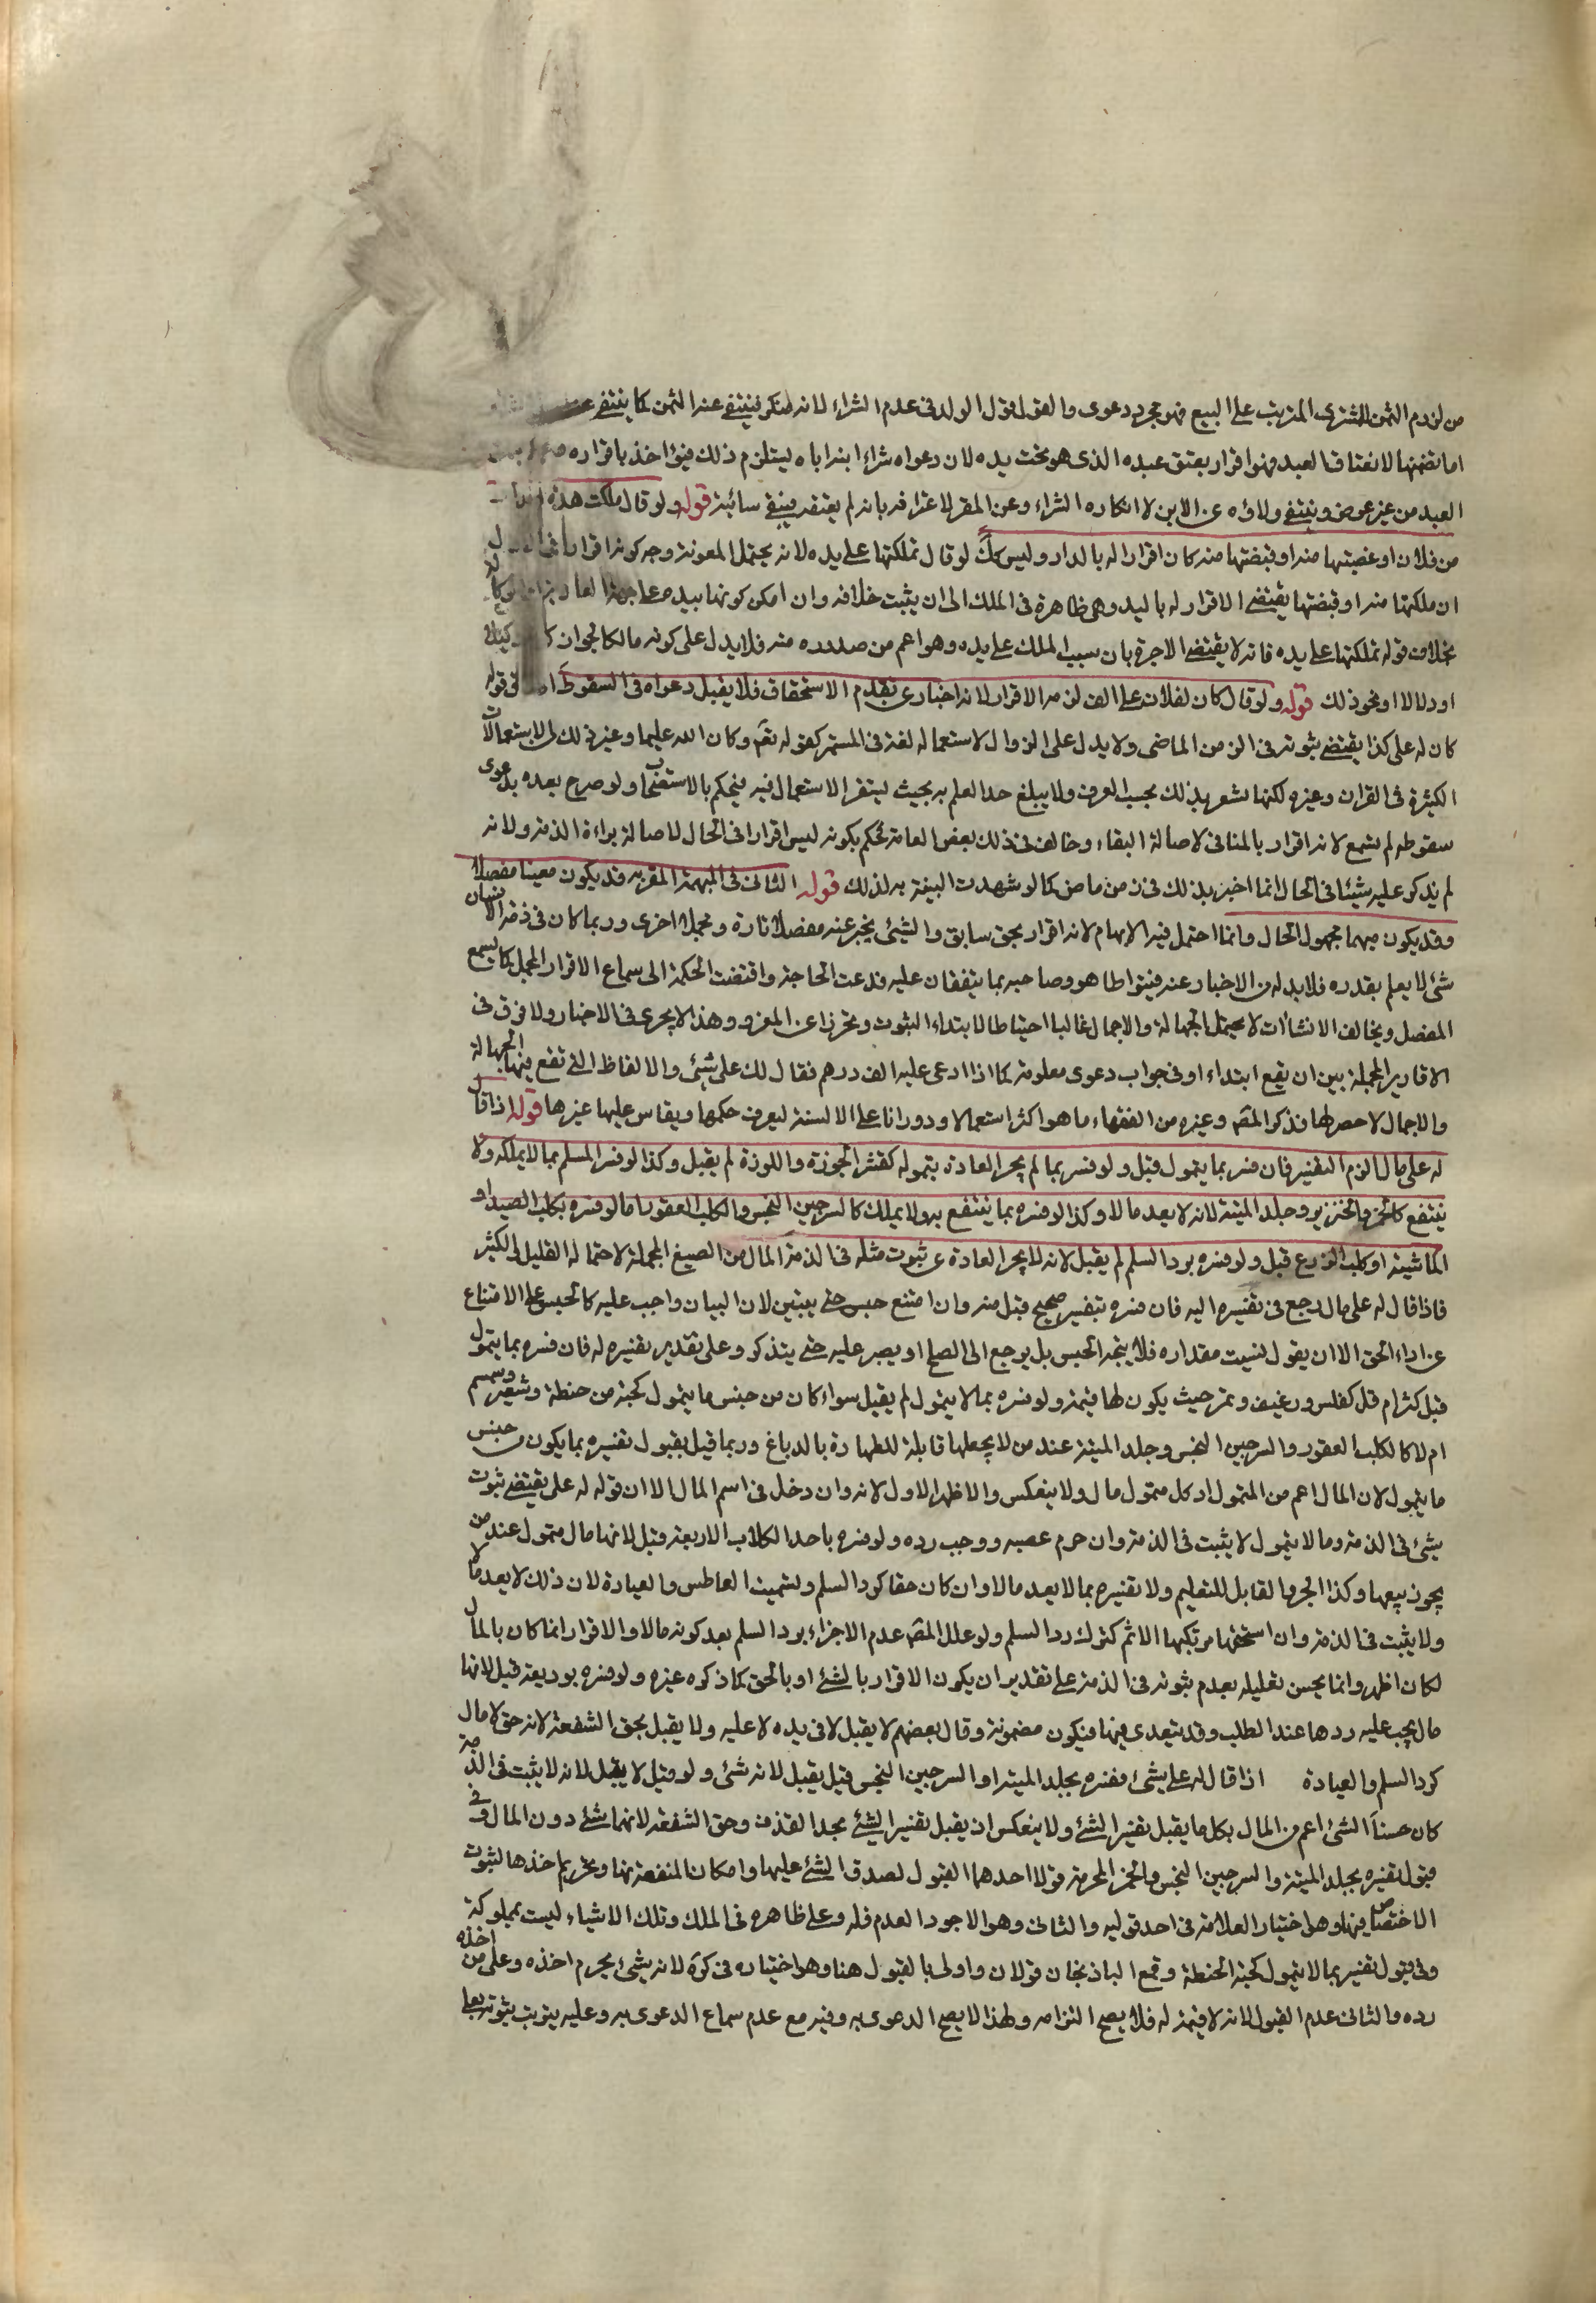 من لزوم الثمن للمشتري المترتب على البيع فهو مجرد دعوى والقول قول الولد في عدم الشراء لانه منكر فينتفي عنه الثمن كما ينتفي عنه
اما تضمنها لانعتاق العبد فهو اقرار بعتق عبده الذي هو تحت يده لان دعواه شراء ابنه اباه يستلزم ذلك فيؤاخذ باقراره
العبد من غير عوض وينتفي ولاؤه عن الابن لانكاره الشراء وعن المقر لاعترافه بانه لم يعتقه فيبقى سائبة قوله ولو قال ملكت هذه الدار
من فلان او غصبتها منه او قبضتها منه كان اقرارا له بالدار وليس كك لو قال تملكتها على يده لانه يحتمل المعونة وجه كونه اقرارا في الاول
ان ملكتها منه او قبضتها يقتضي الاقرار له باليد وهي ظاهرة في الملك الى ان يثبت خلافه وان امكن كونها بيده على جهة العارية
بخلاف قوله تملكتها على يده فانه لا يقتضي الا جرية بان سبب الملك على يده وهو اعم من صدوره منه فلا يدل على كونه مالكا لجواز كونه وكيلا
او دلالا او نحو ذلك قوله ولو قال كان لفلان علي الف لزمه الاقرار لانه اخبار عن تقدم الاستحقاق فلا يقبل دعواه في السقوط في قوله
كان له علي كذا يقتضي ثبوته في الزمن الماضي ولا يدل على الزوال لاستعماله لغة في المستمر كقوله تعم وكان الله عليما وغير ذلك من الاستعمالات
الكثيرة في القران وغيره لكنها تشعر بذلك بحسب العرف ولا يبلغ حد العلم به بحيث يستقر الاستعمال فيه فيحكم بالاستصحاب ولو صرح بعده بدعوى
سقوطه لم يسمع لانه اقرار بالمنافي لاصالة البقاء وخالف في ذلك بعض العامة فحكم بكونه ليس اقرارا في الحال لاصالة براءة الذمة ولانه
لم يذكر عليه شيئا في الحال انما اخبر بذلك في زمن ماض كما لو شهدت البينة به لذلك قوله الثاني في المبهمة المقر به قد يكون معينا مفصلا
وقد يكون مبهما مجهول الحال وانما احتمل فيه الابهام لانه اقرار بحق سابق والشيئ يخبر عنه مفصلا تارة ومجملا اخرى وربما كان في ذمة الانسان
شئ لا يعلم بقدره فلا بد له من الاخبار عنه فيتواطا هو وصاحبه بما يتفقان عليه فدعت الحاجة واقتضت الحكمة الى سماع الاقرار المجمل كما يسمع
المفصل ويخالف الانشاات لا يحتمل الجهالة والاجمال غالبا احتياطا لابتداء الثبوت وتحرزا عن الغرر وهذا لا يجري في الاخبار ولا فرق في
الاقارير المجملة بين ان يقع ابتداء او في جواب دعوى معلومة كما اذا ادعى عليه الف درهم فقال لك علي شيئ والالفاظ التي تقع فيها الجهالة
والاجمال لا حصر لها فذكر المقم وغيره من الفقهاء ما هو اكثر استعمالا ودورانا على الالسنة ليعرف حكمها ويقاس عليها غيرها قوله اذا قال
له علي مال الزم التفسير فان فسر بما يتمول قبل ولو فسر بما لم يجر العادة بتموله كقشر الجوزة واللوزة لم يقبل وكذا لو فسر المسلم بما لا يملكه ولا
ينتفع كالخمر والخنزير وجلد الميتة لانه لا يعد مالا وكذا لو فسره بما ينتفع به ولا يملك كالسرجين النجس والكلب العقور اما لو فسره بكلب الصيد او
الماشية او كلب الزرع قبل ولو فسره برد السلم لم يقبل لانه لا يجر العادة عن ثبوت مثله في الذمة المال من الصيغ المجملة لاحتماله القليل والكثير
فاذا قال له علي مال رجع في تفسيره اليه فان فسره بتفسير صحيح قبل منه وان امتنع حبس حتى يبين لان البيان واجب عليه كالحبس على الامتناع
عن اداء الحق الا ان يقول نسيت مقداره فلا يتجه الحبس بل يرجع الى الصلح او يصبر عليه حتى يتذكر وعلى تقدير تفسيره له فان فسره بما يتمول
قبل كثر ام قل كفلس ورغيف وتمر حيث يكون لها قيمة ولو فسره بما لا يتمول لم يقبل سواء كان من جنس ما يتمول كحبة من حنطة وشعير وسمسم
ام لا كالكلب العقور والسرجين النجس وجلد الميتة عند من لا يجعلها قابلة للطهارة بالدباغ وربما قيل بقبول تفسيره بما يكون من جنس
ما يتمول لان المال اعم من المتمول اذ كل متمول مال ولا ينعكس والاظهر الاول لانه وان دخل في اسم المال الا ان قوله له علي يقتضي ثبوت
شيئ في الذمة وما لا يتمول لا يثبت في الذمة وان حرم غصبه ووجب رده ولو فسره باحد الكلاب الاربعة قبل لانها مال متمول عند من
يجوز بيعها وكذا الجرو القابل للتعليم ولا تفسيره بما لا يعد مالا وان كان حقا كرد السلم وتسميت العاطس والعيادة لان ذلك لا يعد مالا
ولا يثبت في الذمة وان استحق مرتكبها الاثم كترك رد السلم ولو علل المقم عدم الاجزاء برد السلم بعد كونه مالا والاقرار انما كان بالمال
لكان اظهر وانما يحسن تعليله بعدم ثبوته في الذمة على تقدير ان يكون الاقرار بالشئ او بالحق كما ذكره غيره ولو فسره بوديعة قبل لانها
مال يجب عليه ردها عند الطلب وقد يتعدى فيها فيكون مضمونة وقال بعضهم لا يقبل لا في يده لا عليه ولا يقبل بحق الشفعة لانه حق لا مال
كرد السلم والعيادة اذا قال له علي شيئ ففسره بجلد الميتة او السرجين النجس قيل يقبل لانه شئ ولو قيل لا يقبل لانه لا يثبت في الذمة
كان حسنا الشئ اعم من المال بكل ما يقبل تفسير الشئ ولا ينعكس اذ يقبل تفسير الشئ بحد القذف وحق الشفعة لانهما شئ دون المال وفي
قبول تفسيره بجلد الميتة والسرجين النجس والخمر المحرمة قولا احدهما القبول لصدق الشئ عليها وامكان المنفعة بها وتحريم اخذها لثبوت
الاختصاص فيها وهو اختيار العلامة في احد قوليه والثاني وهو الاجود العدم فله وعلي ظاهره في الملك وتلك الاشياء ليست بمملوكة
وفي قبول تفسيره بما لا يتمول كحبة الحنطة وقمع الباذنجان قولان واولى بالقبول هنا وهو اختياره في كرة لانه شيئ يحرم اخذه وعلى من اخذه
رده والثاني عدم القبول لانه لا قيمة له فلا يصح التزامه ولهذا لا يصح الدعوى به وفيه مع عدم سماع الدعوى به وعليه يترتب ثبوته بعلي